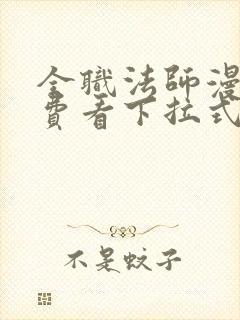 全職法師漫
費看下拉式
不是蚊子